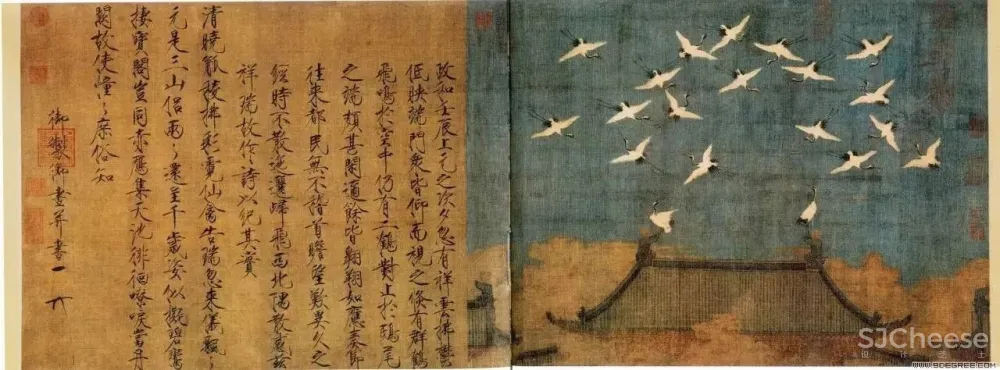 政和壬辰上元之次夕忽有祥雲拂鬱
低映端門衆皆仰而視之倏有群鶴
飛鳴於空中仍有二鶴對止於鴟尾
之端頗甚閑適餘皆翱翔如應奏節
往來都民無不稽首瞻望歎異久之
經時不散迤邐歸飛西北隅散感兹
祥瑞故作詩以紀其實
清曉觚稜拂彩霓仙禽告瑞忽來儀飄々
元是三山侶兩々還呈千歲姿似擬碧鸞
棲寶閣豈同赤鴈集天池徘徊嘹唳當丹
闕故使憧々庶俗知
御製御畫并書
SJCheese
WWW.9DEGREE.COM